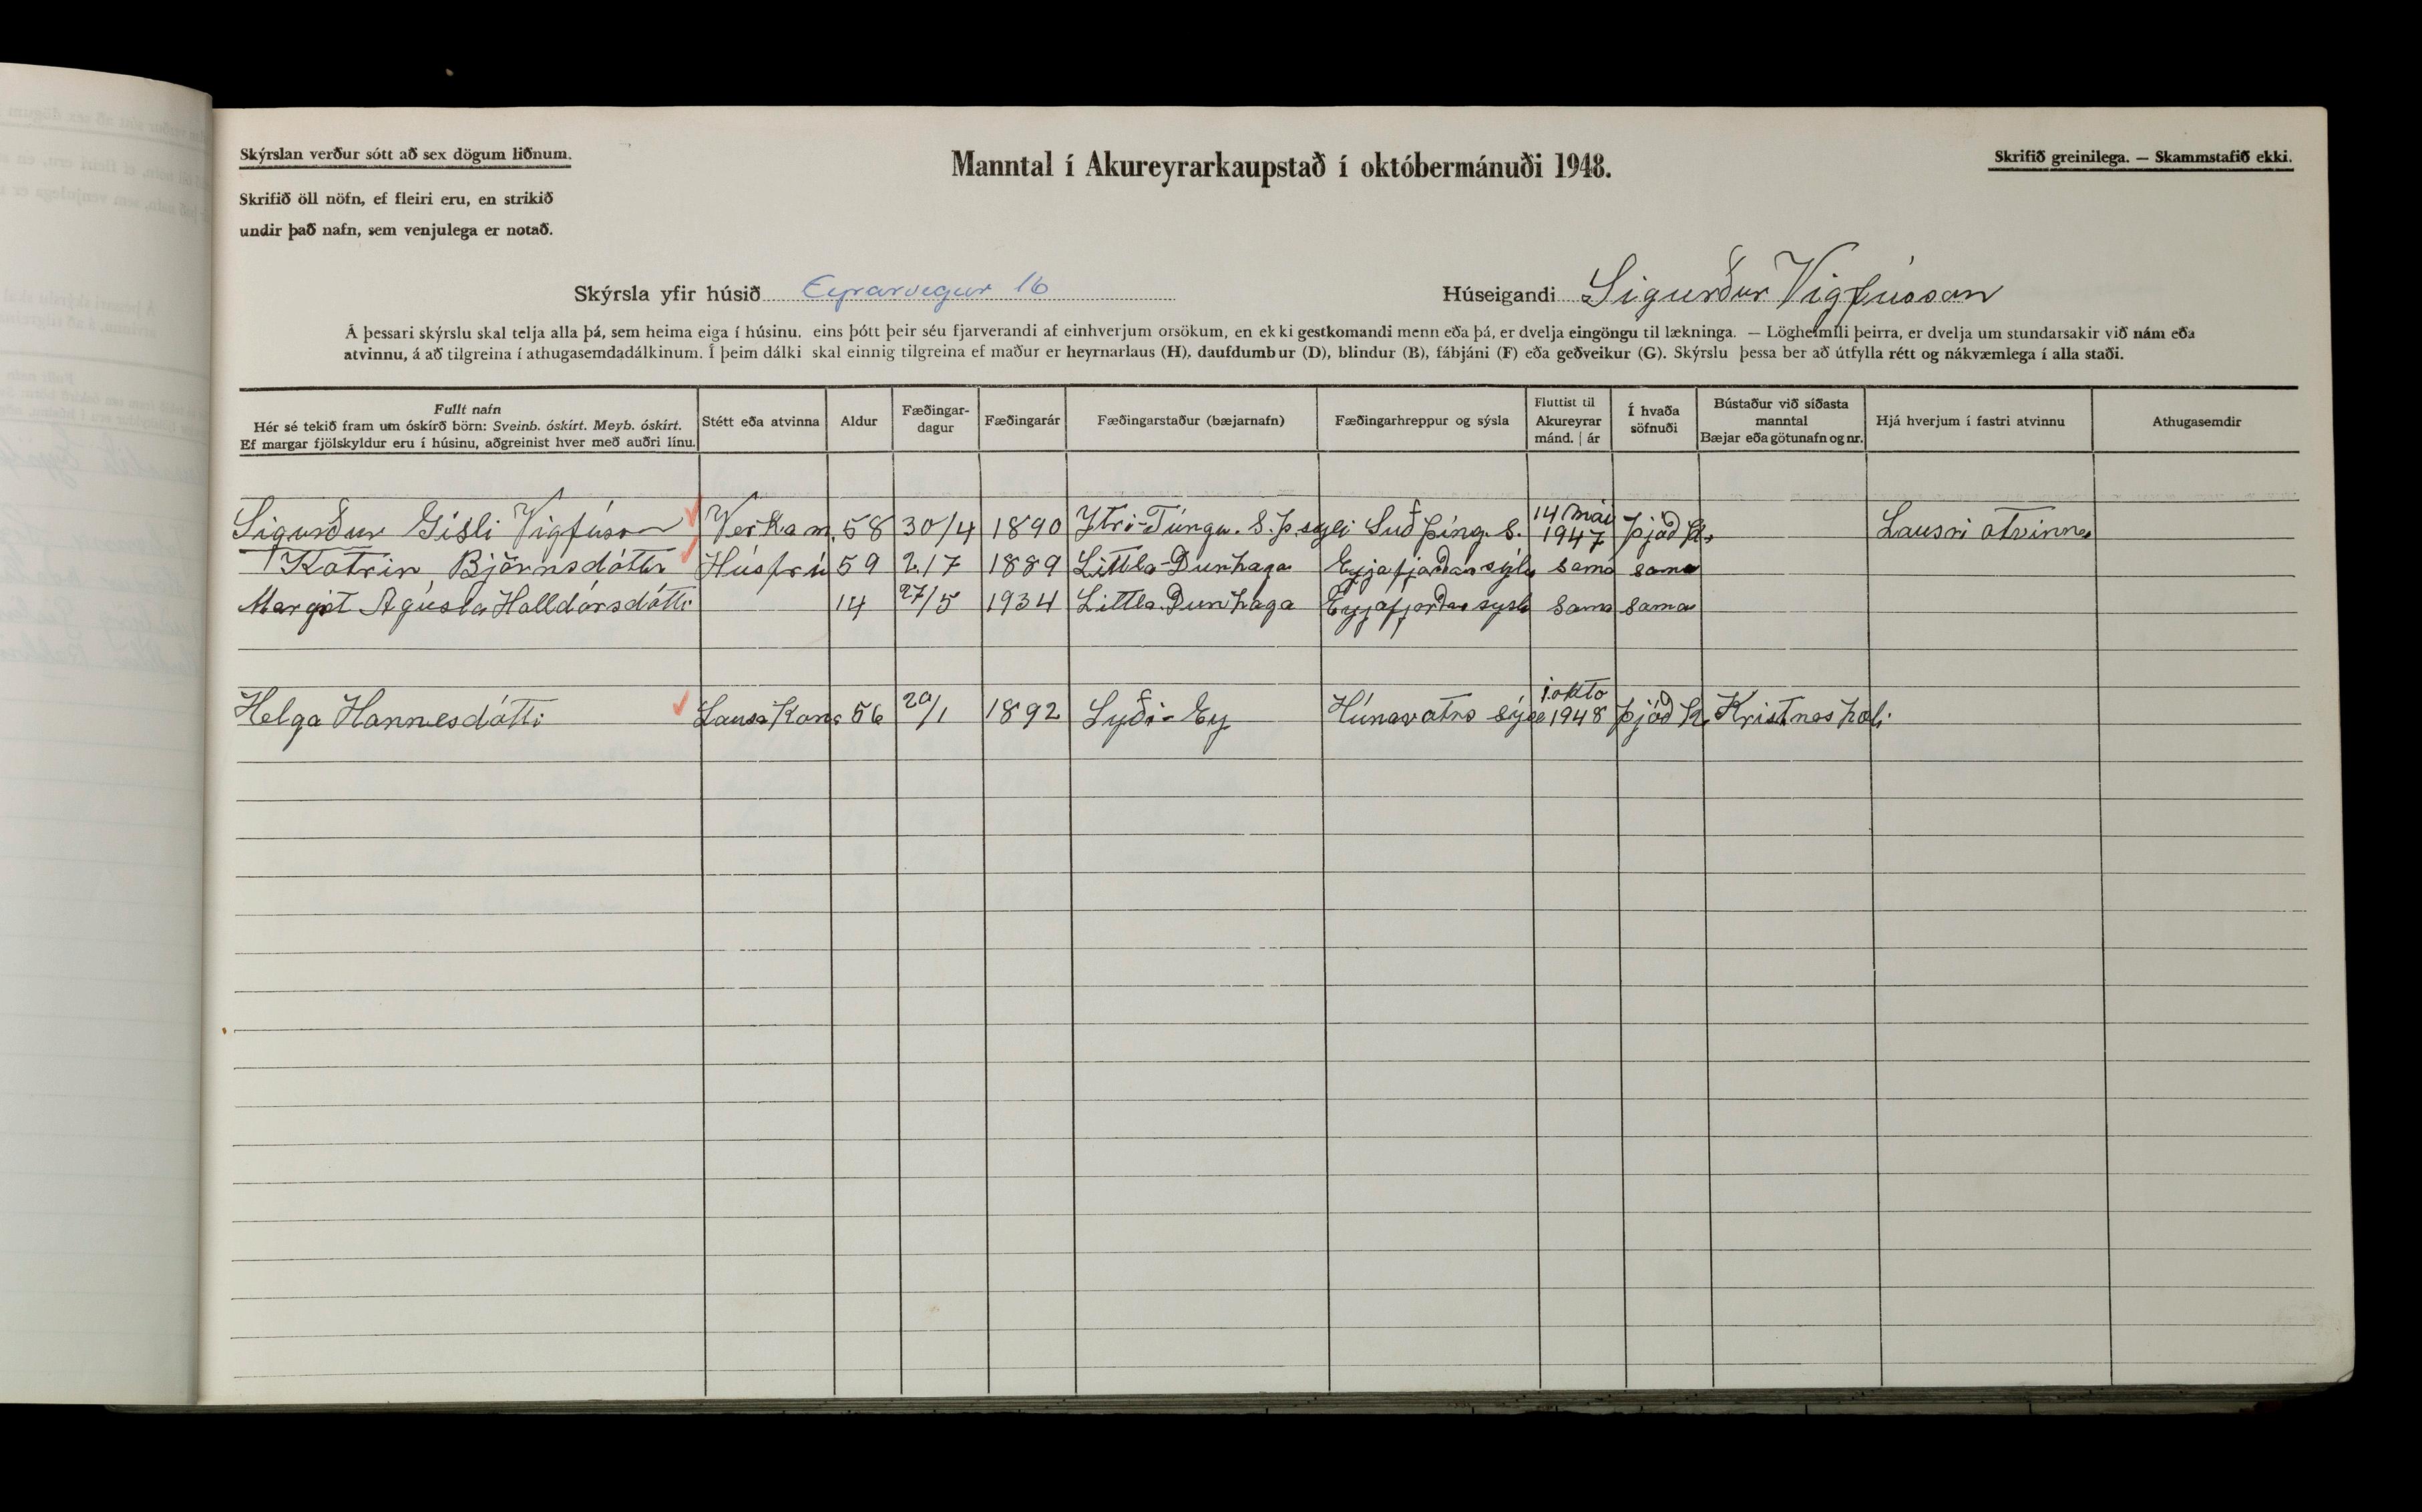 Skýrslan verður sótt að sex dögum liðnum.
Skrifið öll nöfn, ef fleiri eru, en strikið
undir það nafn, sem venjulega er notað.
Manntal í Akureyrarkaupstað í októbermánuði 1948.
Skrifið greinilega. — Skammstafið ekki.
Skýrsla yfir húsið Eyrarvegur 16
Húseigandi Sigurður Vigfússon
Á þessari skýrslu skal telja alla þá, sem heima eiga í húsinu, eins þótt þeir séu fjarverandi af einhverjum orsökum, en ekki gestkomandi menn eða þá, er dvelja eingöngu til lækninga. — Lögheimili þeirra, er dvelja um stundarsakir við nám eða
atvinnu, á að tilgreina í athugasemdadálkinum. Í þeim dálki skal einnig tilgreina ef maður er heyrnarlaus (H), daufdumbur (D), blindur (B), fábjáni (F) eða geðveikur (G). Skýrslu þessa ber að útfylla rétt og nákvæmlega í alla staði.
Fullt nafn
Hér sé tekið fram um óskírð börn: Sveinb. óskírt. Meyb. óskírt.
Ef margar fjölskyldur eru í húsinu, aðgreinist hver með auðri línu.
Stétt eða atvinna
Aldur
Fæðingar-
dagur
Fæðingarár
Fæðingarstaður (bæjarnafn)
Fæðingarhreppur og sýsla
Fluttist til
Akureyrar
mánd. | ár
Í hvaða
söfnuði
Bústaður við síðasta
manntal
Bæjar eða götunafn og nr.
Hjá hverjum í fastri atvinnu
Athugasemdir
Sigurður Gísli Vigfúson Verkam. 58 30/4 1890 Ytri-Túngu. S.Þ.sysli Suð Þing. S. 14 mai 1947 Þjóð k. Lausri atvinnu
Katrin Björnsdóttir Húsfrú 59 2/7 1889 Littla-Dunhaga Eyjafjarðar sýlu sama sama
Margrét Agústa Halldórsdótti 14 27/5 1934 Littla-Dunhaga Eyjafjarðar sysla sama sama
Helga Hannesdótti Lausa Kona 56 20/1 1892 Syðri-Ey Húnavatns sýsl 1. okto 1948 Þjóð k. Kristneshæli